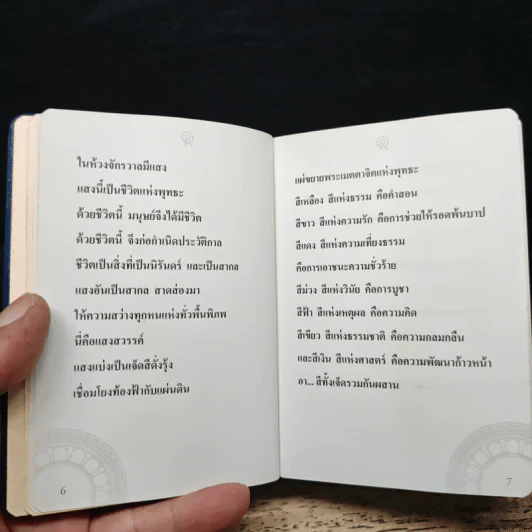 ในห้วงจักรวาลมีแสง
แสงนี้เป็นชีวิตแห่งพุทธะ
ด้วยชีวิตนี้ มนุษย์จึงได้มีชีวิต
ด้วยชีวิตนี้ จึงก่อกำเนิดประวัติกาล
ชีวิตเป็นสิ่งที่เป็นนิรันดร์ และเป็นสากล
แสงอันเป็นสากล สาดส่องมา
ให้ความสว่างทุกหนแห่งทั่วพื้นพิภพ
นี่คือแสงสวรรค์
แสงแบ่งเป็นเจ็ดสีดั่งรุ้ง
เชื่อมโยงท้องฟ้ากับแผ่นดิน
6
แผ่ขยายพระเมตตาจิตแห่งพุทธะ
สีเหลือง สีแห่งธรรม คือคำสอน
สีขาว สีแห่งความรัก คือการช่วยให้รอดพ้นบาป
สีแดง สีแห่งความเที่ยงธรรม
คือการเอาชนะความชั่วร้าย
สีม่วง สีแห่งวินัย คือการบูชา
สีฟ้า สีแห่งเหตุผล คือความคิด
สีเขียว สีแห่งธรรมชาติ คือความกลมกลืน
และสีเงิน สีแห่งศาสตร์ คือความพัฒนาก้าวหน้า
อา... สีทั้งเจ็ดรวมกันผสาน
7